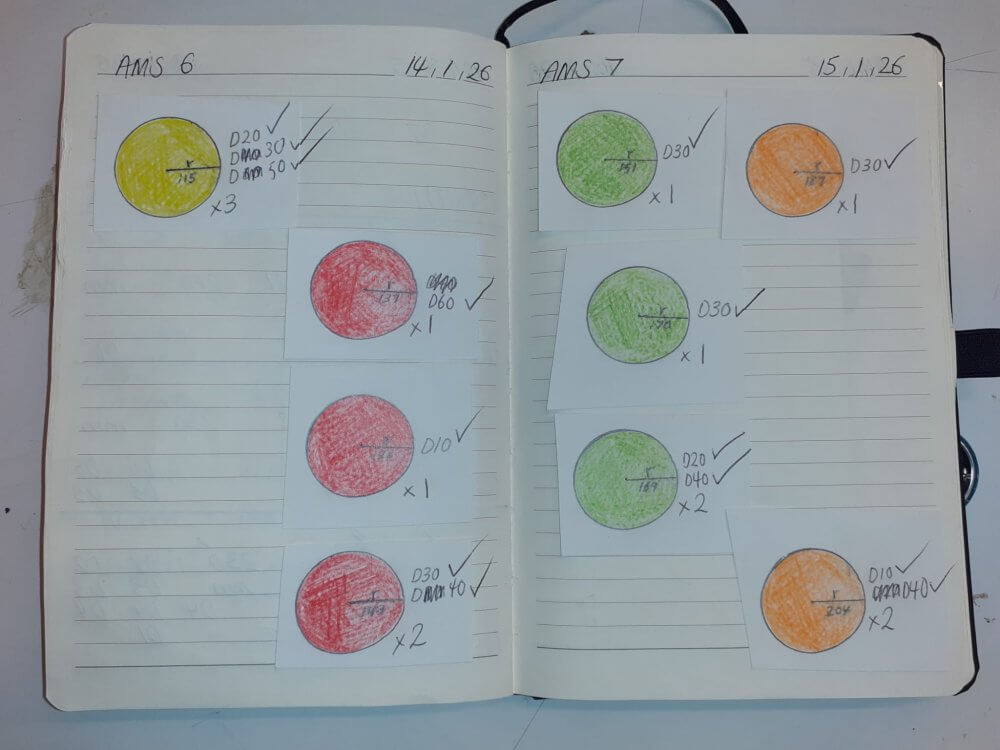 AMS 6
14.1.26
D20 ✓
D 30 ✓
D 50 ✓
r
115
x3
D60 ✓
r
139
x1
D10 ✓
r
x1
D30 ✓
D 40 ✓
r
x2
AMS 7
15.1.26
D30 ✓
r
151
x1
D30 ✓
r
187
x1
D30 ✓
r
170
x1
D20 ✓
D40 ✓
r
169
x2
D10 ✓
D40 ✓
r
204
x2